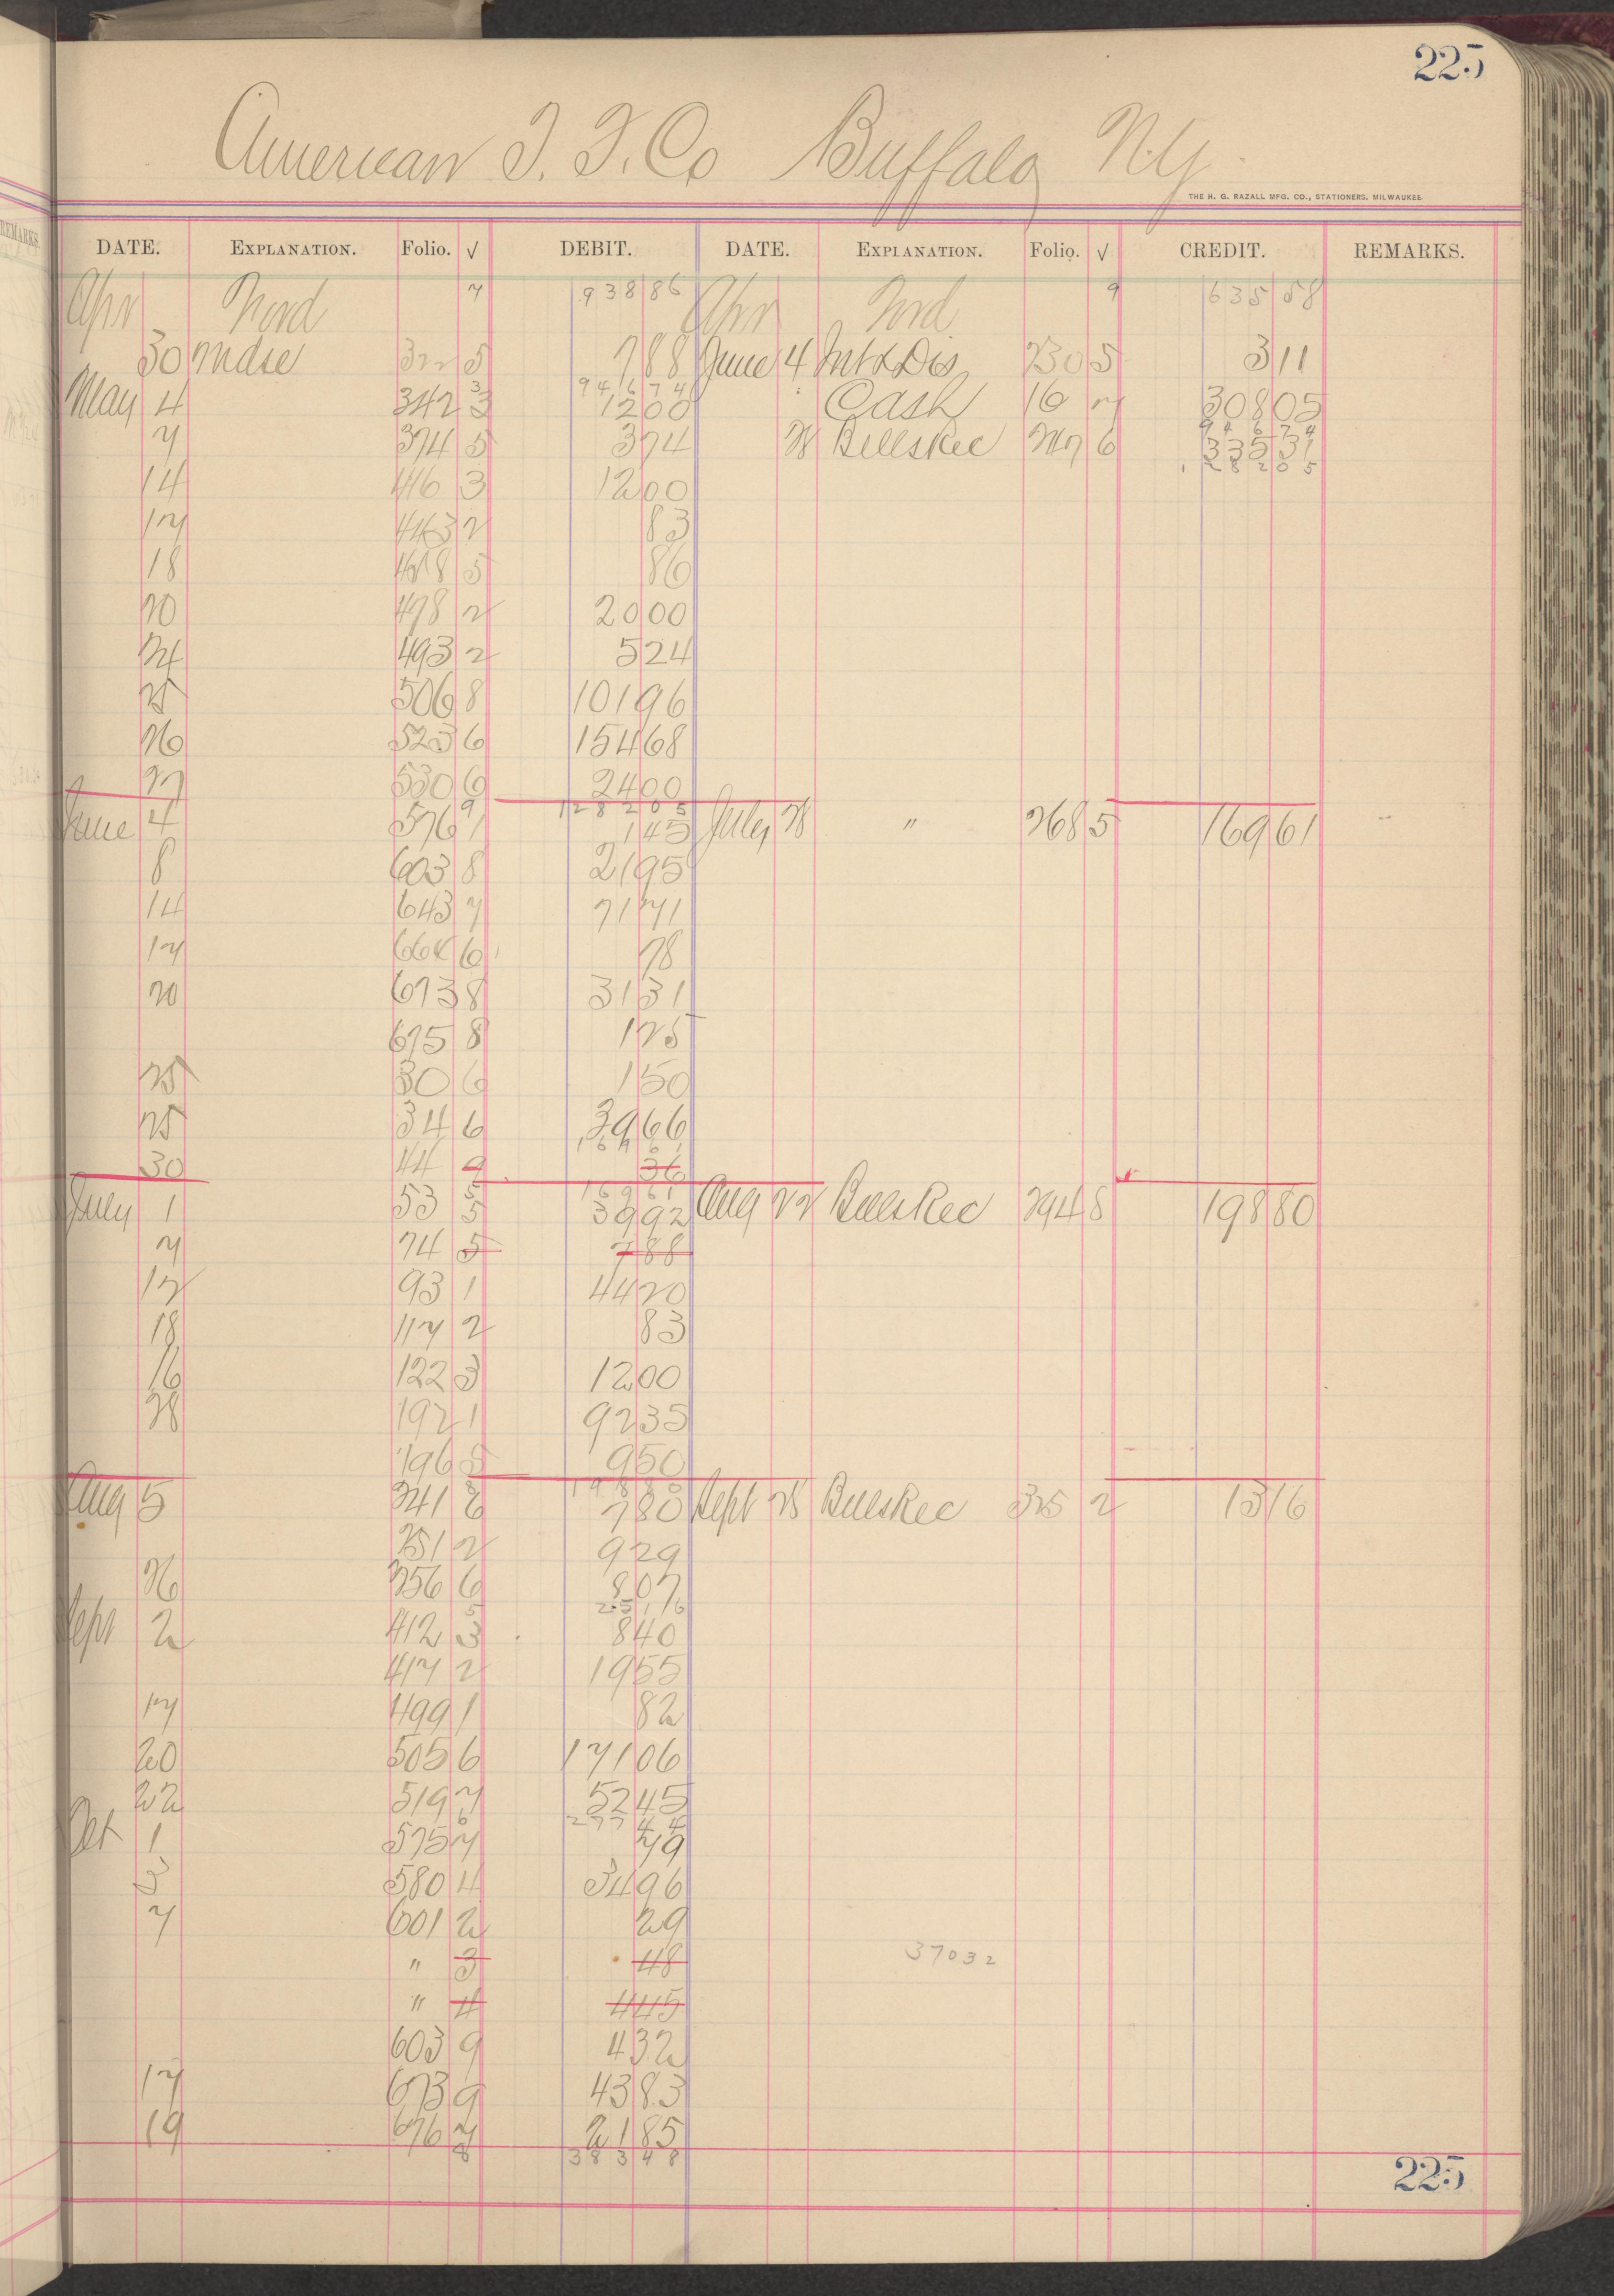 225
American T. T. Co Buffalo N.Y.
THE H. G. RAZALL MFG. CO., STATIONERS, MILWAUKEE.
DATE. EXPLANATION. Folio. √ DEBIT. DATE. EXPLANATION. Folio. √ CREDIT. REMARKS.
Apr Ford 7 938 86 Apr Ford 9 635 58
30 Mdse 322 5 7 88 June 4 Int & Dis 230 5 3 11
946 74
May 4 342 3 12 00 Cash 16 7 308 05
3 946 74
7 374 5 3 74 28 Bills Rec 247 6 335 31
1 282 05
14 416 3 12 00
17 443 2 83
18 5 86
20 498 2 20 00
24 493 2 5 24
25 506 8 101 96
26 523 6 154 68
27 530 6 24 00
9 1282 05
June 4 576 1 1 45 July 28 " 268 5 169 61
8 603 8 21 95
14 643 7 71 71
17 664 6 78
20 673 8 31 31
675 8 1 25
25 30 6 1 50
25 34 6 39 66
30 44 9 36
5 169 61
July 1 53 5 39 92 Aug 22 Bills Rec 294 8 198 80
7 74 5 7 88
12 93 1 44 20
18 117 2 83
16 122 3 12 00
28 192 1 92 35
196 5 9 50
198 80
Aug 5 241 6 7 80 Sept 28 Bills Rec 325 2 13 16
251 2 9 29
26 356 6 8 07
5 25 16
Sept 2 412 3 8 40
417 2 19 55
17 499 1 82
20 505 6 171 06
22 519 7 52 45
6 277 44
Oct 1 575 7 79
3 580 4 34 96
7 601 2 29
" 3 48 37032
" 4 4 45
603 9 4 32
17 673 9 43 83
19 676 7 21 85
8 383 48
225